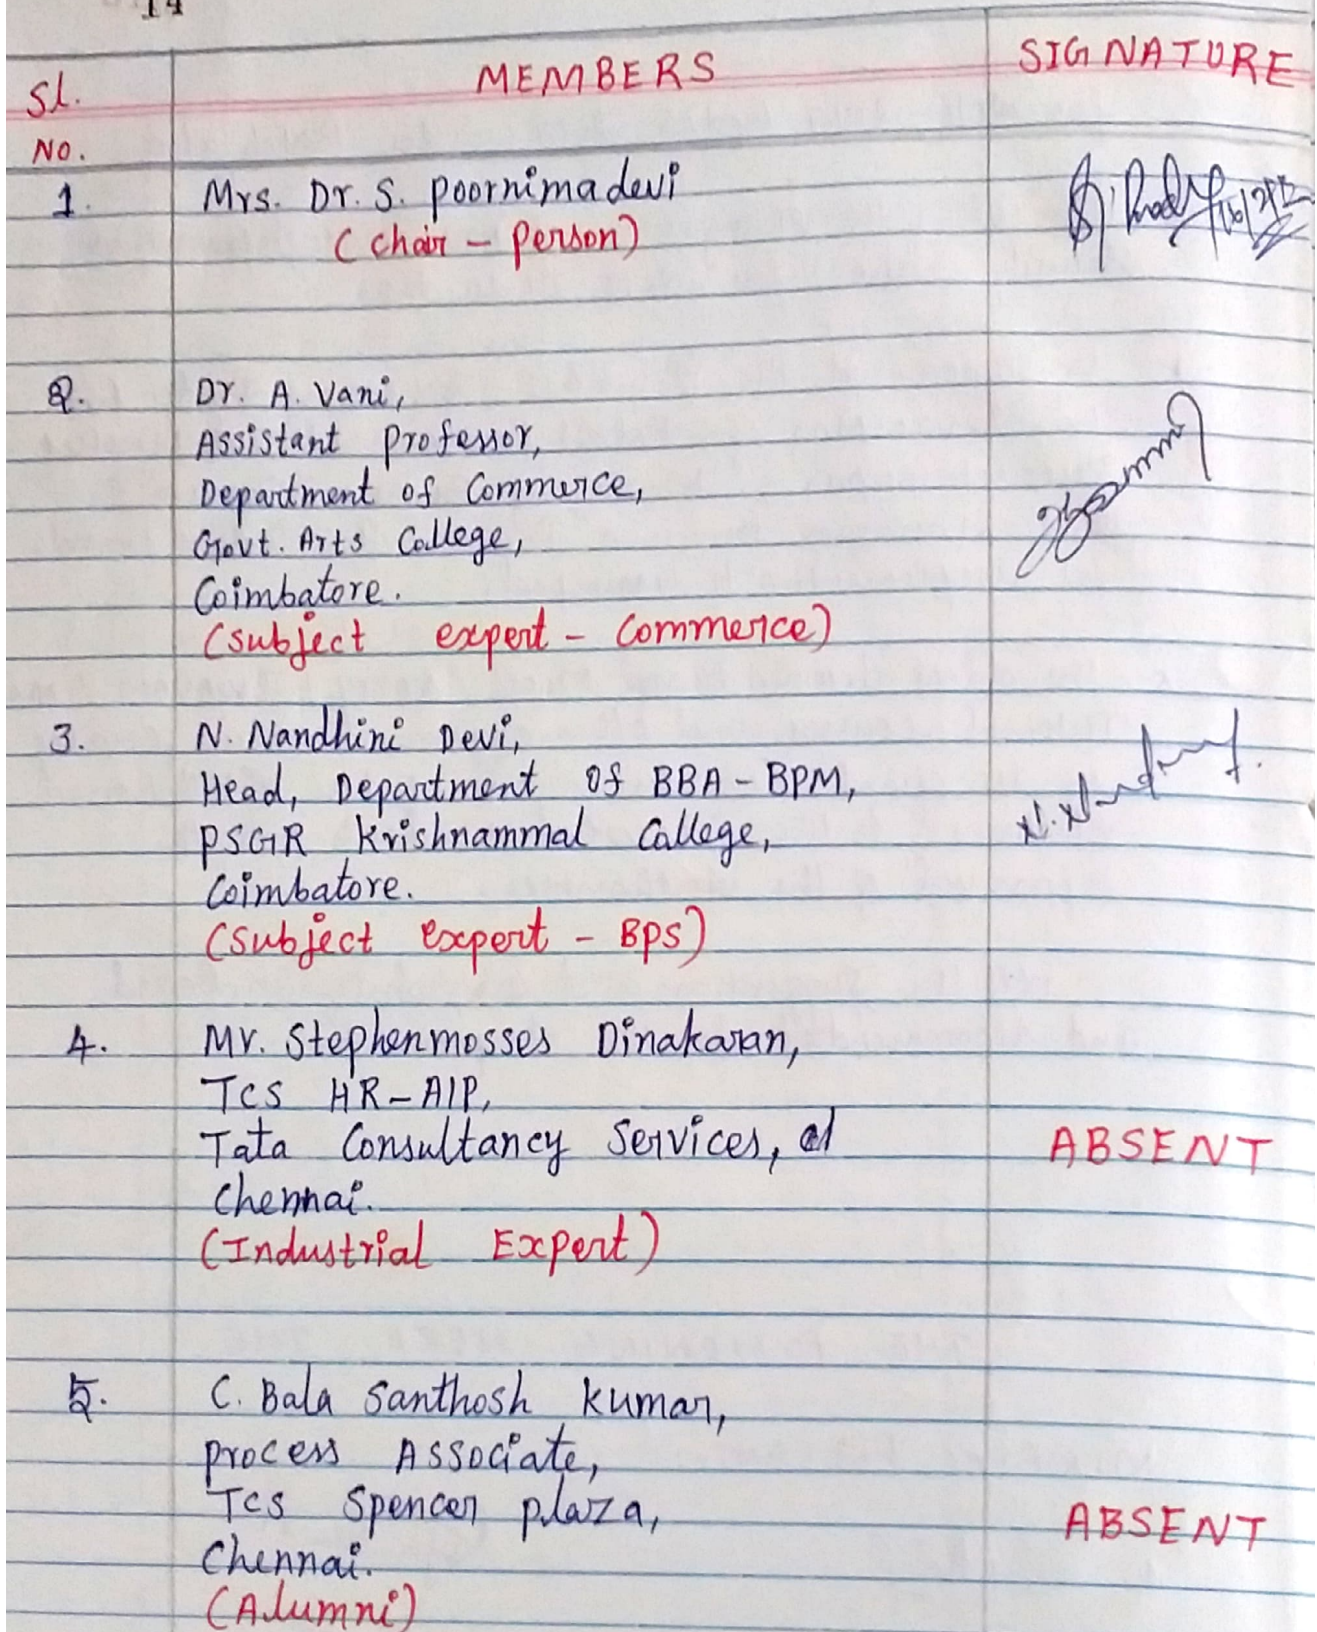 14
Sl. MEMBERS SIGNATURE
No.
1. Mrs. Dr. S. Poornimadevi
(Chair - Person)
2. Dr. A. Vani,
Assistant Professor,
Department of Commerce,
Govt. Arts College,
Coimbatore.
(Subject expert - Commerce)
3. N. Nandhini Devi,
Head, Department of BBA - BPM,
PSGR Krishnammal College,
Coimbatore.
(Subject expert - BPS)
4. Mr. Stephenmosses Dinakaran,
TCS HR - AIP,
Tata Consultancy Services, ABSENT
Chennai.
(Industrial Expert)
5. C. Bala Santhosh Kumar,
Process Associate,
TCS Spencer Plaza, ABSENT
Chennai.
(Alumni)